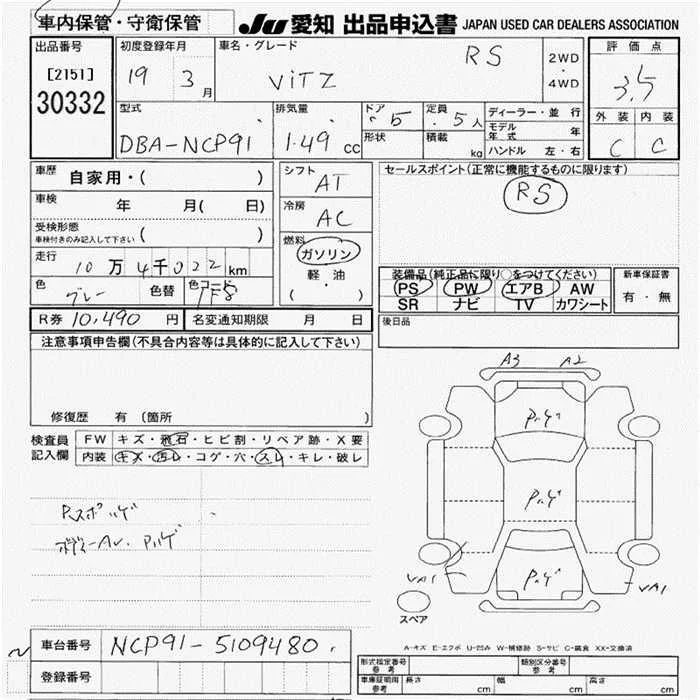 車内保管・守衛保管
JU 愛知 出品申込書 JAPAN USED CAR DEALERS ASSOCIATION
出品番号
[2151]
30332
初度登録年月
19 3月
車名・グレード
ViTZ RS
2WD
・
4WD
評価点
3.5
外装 内装
C C
型式
DBA-NCP91
排気量
1.49 cc
ドア
5
形状
定員
5人
積載
kg
ディーラー・並行
モデル年式 年
ハンドル 左・右
車歴
自家用・( )
車検 年 月( 日)
受検形態
車検付きのみ記入して下さい ( )
走行
10万4千022km
色
グレー
色替
色コード
1F8
シフト
AT
冷房
AC
燃料
ガソリン
軽油
( ・ )
セールスポイント(正常に機能するものに限ります)
RS
装備品(純正品に限り○をつけてください)
PS PW エアB AW
SR ナビ TV カワシート
新車保証書
有・無
R券 10,490 円
名変通知期限 月 日
後日品
注意事項申告欄(不具合内容等は具体的に記入して下さい)
修復歴 有 〔箇所 〕
検査員
記入欄
FW キズ・飛石・ヒビ割・リペア跡・X要
内装 キズ・汚レ・コゲ・穴・スレ・キレ・破レ
A3 A2
Pルゲ
Pルゲ
Pルゲ
VA1
VA1
スペア
Rスポ ハゲ
ボディーAU. Pルゲ
A-キズ E-エクボ U-凹み W-補修跡 S-サビ C-腐食 XX-交換済
車台番号
NCP91-5109480
登録番号
形式指定番号
参考
類別区分番号
参考
車庫証明用
参考
長さ cm
幅 cm
高さ cm